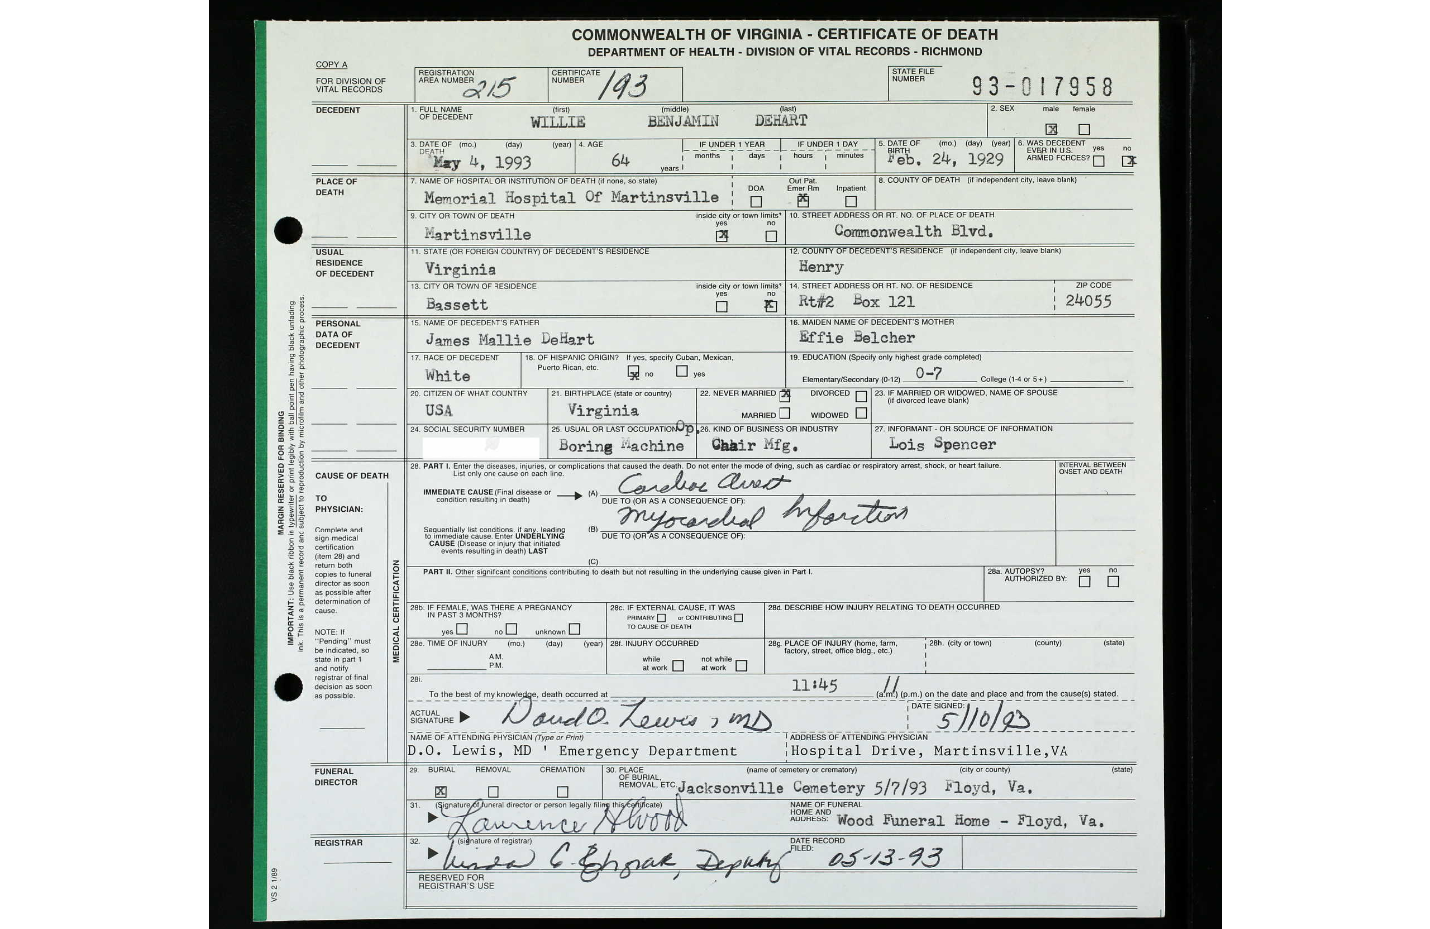 COMMONWEALTH OF VIRGINIA - CERTIFICATE OF DEATH
DEPARTMENT OF HEALTH - DIVISION OF VITAL RECORDS - RICHMOND
COPY A
FOR DIVISION OF
VITAL RECORDS
REGISTRATION
AREA NUMBER 215
CERTIFICATE
NUMBER 193
STATE FILE
NUMBER 93-017958
DECEDENT
1. FULL NAME (first) (middle) (last)
OF DECEDENT WILLIE BENJAMIN DEHART
2. SEX male female
3. DATE OF (mo.) (day) (year)
DEATH
May 4, 1993
4. AGE
64 years
IF UNDER 1 YEAR
months days
IF UNDER 1 DAY
hours minutes
5. DATE OF (mo.) (day) (year)
BIRTH
Feb. 24, 1929
6. WAS DECEDENT
EVER IN U.S. yes no
ARMED FORCES?
PLACE OF
DEATH
7. NAME OF HOSPITAL OR INSTITUTION OF DEATH (if none, so state)
Memorial Hospital Of Martinsville
DOA
Out Pat.
Emer Rm
Inpatient
8. COUNTY OF DEATH (if independent city, leave blank)
9. CITY OR TOWN OF DEATH
Martinsville
inside city or town limits?
yes no
10. STREET ADDRESS OR RT. NO. OF PLACE OF DEATH
Commonwealth Blvd.
USUAL
RESIDENCE
OF DECEDENT
11. STATE (OR FOREIGN COUNTRY) OF DECEDENT'S RESIDENCE
Virginia
12. COUNTY OF DECEDENT'S RESIDENCE (if independent city, leave blank)
Henry
13. CITY OR TOWN OF RESIDENCE
Bassett
inside city or town limits?
yes no
14. STREET ADDRESS OR RT. NO. OF RESIDENCE
Rt#2 Box 121
ZIP CODE
24055
PERSONAL
DATA OF
DECEDENT
15. NAME OF DECEDENT'S FATHER
James Mallie DeHart
16. MAIDEN NAME OF DECEDENT'S MOTHER
Effie Belcher
17. RACE OF DECEDENT
White
18. OF HISPANIC ORIGIN? If yes, specify Cuban, Mexican,
Puerto Rican, etc. no yes
19. EDUCATION (Specify only highest grade completed)
Elementary/Secondary (0-12) 0-7 College (1-4 or 5+)
20. CITIZEN OF WHAT COUNTRY
USA
21. BIRTHPLACE (state or country)
Virginia
22. NEVER MARRIED DIVORCED
MARRIED WIDOWED
23. IF MARRIED OR WIDOWED, NAME OF SPOUSE
(if divorced leave blank)
24. SOCIAL SECURITY NUMBER
25. USUAL OR LAST OCCUPATION
Boring Machine Op.
26. KIND OF BUSINESS OR INDUSTRY
Chair Mfg.
27. INFORMANT - OR SOURCE OF INFORMATION
Lois Spencer
CAUSE OF DEATH
TO
PHYSICIAN:
Complete and
sign medical
certification
(item 28) and
return both
copies to funeral
director as soon
as possible after
determination of
cause.
NOTE: If
"Pending" must
be indicated, so
state in part 1
and notify
registrar of final
decision as soon
as possible.
MEDICAL CERTIFICATION
28. PART I. Enter the diseases, injuries, or complications that caused the death. Do not enter the mode of dying, such as cardiac or respiratory arrest, shock, or heart failure.
List only one cause on each line.
INTERVAL BETWEEN
ONSET AND DEATH
IMMEDIATE CAUSE (Final disease or
condition resulting in death)
(A) Cardiac Arrest
DUE TO (OR AS A CONSEQUENCE OF):
Sequentially list conditions, if any, leading
to immediate cause. Enter UNDERLYING
CAUSE (Disease or injury that initiated
events resulting in death) LAST
(B) Myocardial Infarction
DUE TO (OR AS A CONSEQUENCE OF):
(C)
PART II. Other significant conditions contributing to death but not resulting in the underlying cause given in Part I.
28a. AUTOPSY? yes no
AUTHORIZED BY:
28b. IF FEMALE, WAS THERE A PREGNANCY
IN PAST 3 MONTHS?
yes no unknown
28c. IF EXTERNAL CAUSE, IT WAS
PRIMARY or CONTRIBUTING
TO CAUSE OF DEATH
28d. DESCRIBE HOW INJURY RELATING TO DEATH OCCURRED
28e. TIME OF INJURY (mo.) (day) (year)
A.M.
P.M.
28f. INJURY OCCURRED
while
at work
not while
at work
28g. PLACE OF INJURY (home, farm,
factory, street, office bldg., etc.)
28h. (city or town) (county) (state)
28i.
To the best of my knowledge, death occurred at 11:45 (a.m.) (p.m.) on the date and place and from the cause(s) stated.
ACTUAL
SIGNATURE David O. Lewis, MD
DATE SIGNED:
5/10/93
NAME OF ATTENDING PHYSICIAN (Type or Print)
D.O. Lewis, MD ' Emergency Department
ADDRESS OF ATTENDING PHYSICIAN
Hospital Drive, Martinsville, VA
FUNERAL
DIRECTOR
29. BURIAL REMOVAL CREMATION
30. PLACE (name of cemetery or crematory) (city or county) (state)
OF BURIAL,
REMOVAL, ETC. Jacksonville Cemetery 5/7/93 Floyd, Va.
31. (Signature of funeral director or person legally filing this certificate)
Lawrence H Wood
NAME OF FUNERAL
HOME AND
ADDRESS: Wood Funeral Home - Floyd, Va.
REGISTRAR
32. (signature of registrar)
Linda C. Deputy
DATE RECORD
FILED: 05-13-93
RESERVED FOR
REGISTRAR'S USE
MARGIN RESERVED FOR BINDING
IMPORTANT: Use black ribbon in typewriter or print legibly with ball point pen having black unfading
ink. This is a permanent record and subject to reproduction by microfilm and other photographic process.
VS 2 1/89